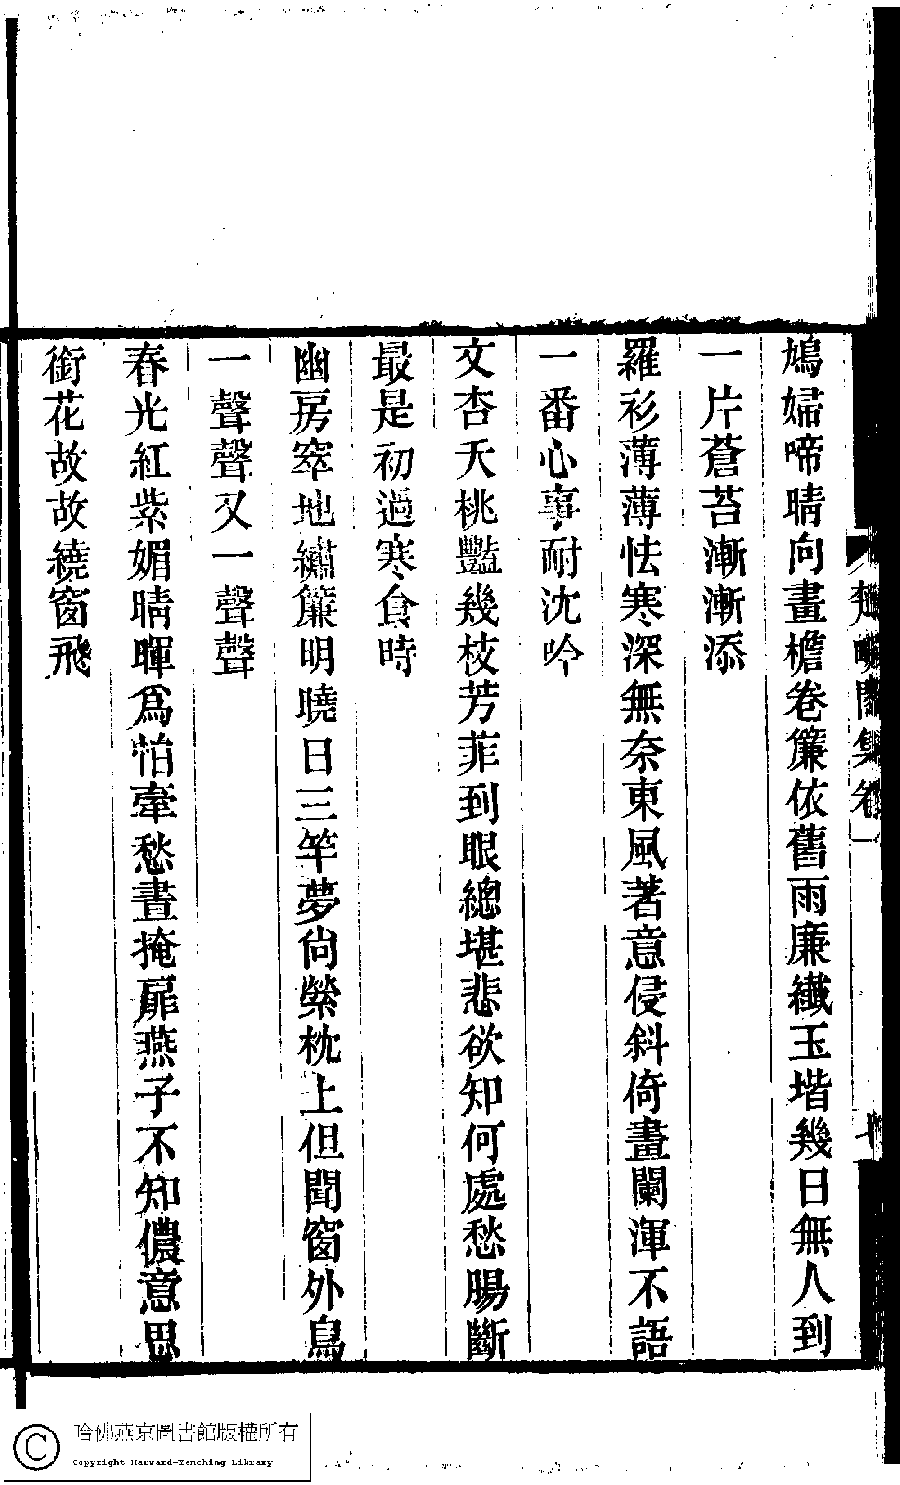 鳩婦啼晴向畫檐卷簾依舊雨廉纖玉堦幾日無人到
一片蒼苔漸漸添
羅衫薄薄怯寒深無奈東風著意侵斜倚畫闌渾不語
一番心事耐沈吟
文杏夭桃豔幾枝芳菲到眼總堪悲欲知何處愁腸斷
最是初過寒食時
幽房窣地繡簾明曉日三竿夢尙縈枕上但聞窗外鳥
一聲聲又一聲聲
春光紅紫媚晴暉爲怕牽愁晝掩扉燕子不知儂意思
銜花故故繞窗飛
集卷一
哈佛燕京圖書館版權所有
Copyright Harvard-Yenching Library